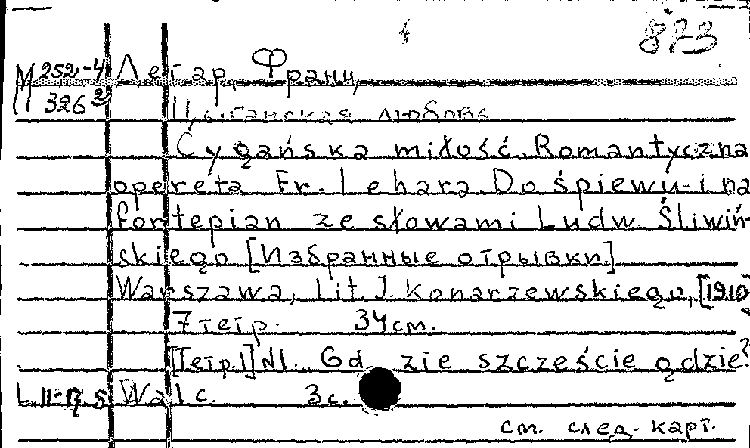 823
М 252-4 Легар, Франц
326 2 Цыганская любовь
Cygańska miłość. Romantyczna
opereta Fr. Lehara. Do śpiewu i na
fortepian ze słowami Ludw. Śliwiń-
skiego [Избранные отрывки]
Warszawa, Lit. J. Konarzewskiego, [1910
7 тетр. 34 см.
[Тетр.1] N1. Gdzie szczęście gdzie?
Walc. 3 с.
см. след. карт.